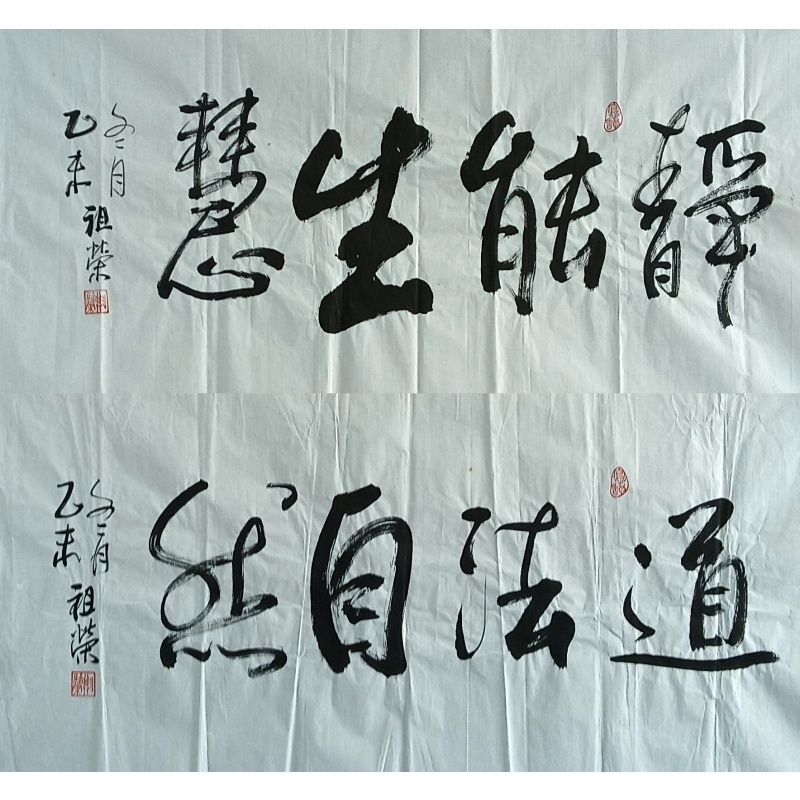 靜能生慧
乙未
冬月
祖榮
道法自然
乙未
冬月
祖榮